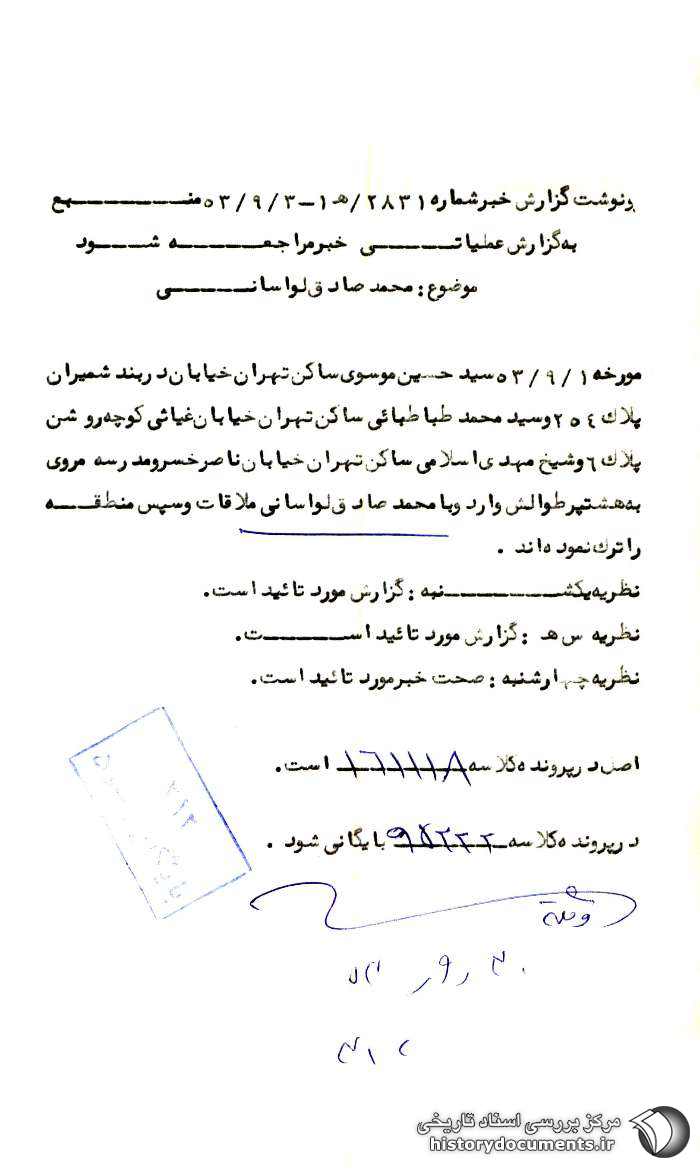 رونوشت گزارش خبر شماره ۲۸۳۱/هـ۱-۵۳/۹/۳ منبع
به گزارش عملیاتی خبر مراجعه شود
موضوع : محمد صادق لواسانی
مورخه ۵۳/۹/۱ سید حسین موسوی ساکن تهران خیابان دربند شمیران
پلاک ۲۵٤ و سید محمد طباطبائی ساکن تهران خیابان غیاثی کوچه روشن
پلاک ٦ و شیخ مهدی اسلامی ساکن تهران خیابان ناصر خسرو مدرسه مروی
به هشتپر طوالش وارد و با محمد صادق لواسانی ملاقات و سپس منطقه
را ترک نموده اند .
نظریه یکشنبه : گزارش مورد تائید است.
نظریه س هـ : گزارش مورد تائید است.
نظریه چهارشنبه : صحت خبر مورد تائید است.
اصل در پرونده کلاسه ۱٦۱۱۱۸ است.
در پرونده کلاسه بایگانی شود .
۳۱۲
مرکز بررسی اسناد تاریخی
historydocuments.ir